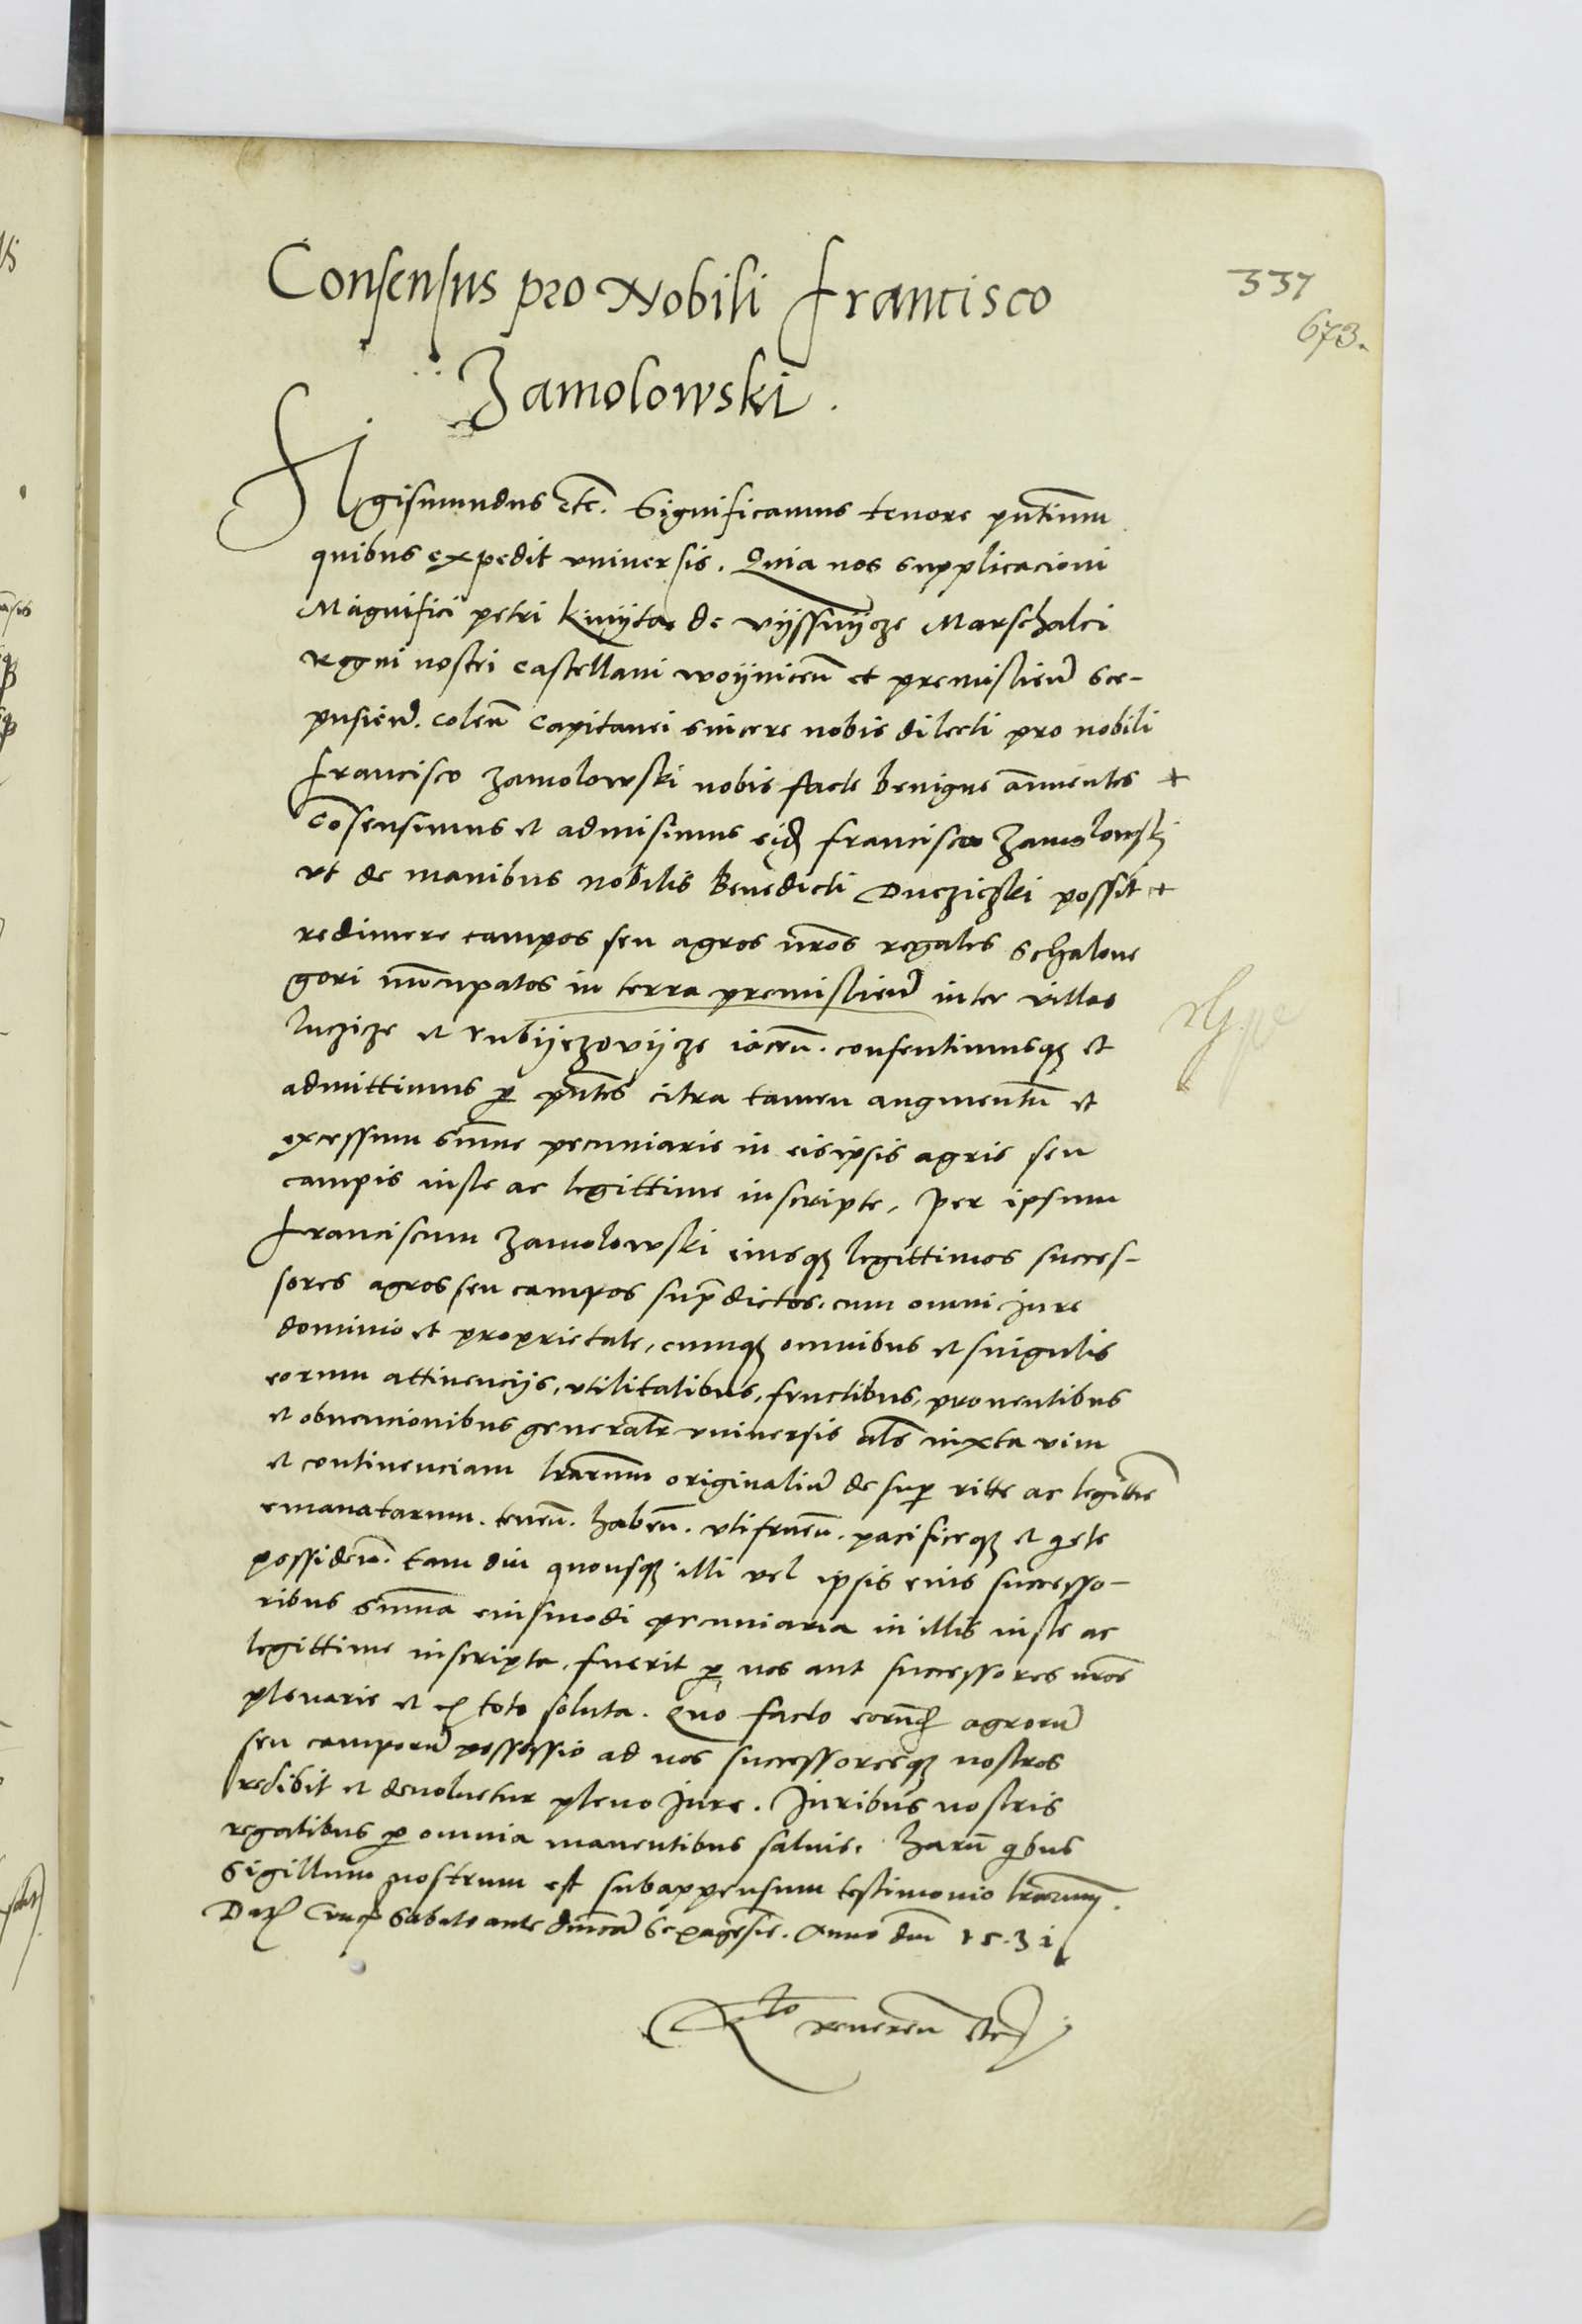 Consensus pro Nobili Francisco
Zamolowski.
337
673.
Sigismundus etc. Significamus tenore pntium
quibus expedit vniversis. Quia nos supplicacioni
Magnifici petri kmyta de vyssnycze Marschalci
regni nostri castellani woynicen et premislien Sce-
pusien. colen Capitanei sincere nobis dilecti pro nobili
Francisco zamolowski nobis facte benigne annuentes +
Cosensimus et admisimus eid Francisco Zamolowskj
vt de manibus nobilis Benedicti Duczickski possit +
redimere campos seu agros nros regales schalone
gori nuncupatos in terra premislien inter villas
luczicze et rubyezovycze iacen. consentimusq et
admittimus p pntes citra tamen augmentu et
excessum sume pecuniarie in eisipsis agris seu
campis iuste ac legittime inscripte, per ipsum
Franciscum zamolowski eiusq legittimos succes-
sores agros seu campos supradictos. cum omni Jure
dominio et proprietate, cumq omnibus et singulis
eorum attinencijs, vtilitatibus, fructibus, prouentibus
et obuencionibus generalr vniversis als iuxta vim
et continenciam lrarum originaliu de sup ritte ac legittie
emanatarum. tenen. haben. vtifruen. pacificeq et qete
possiden. tam diu quousq illi vel ipsis eius successo-
ribus suma eiusmodi pecuniaria in illis iuste ac
legittime inscripta, fuerit p nos aut successores nros
plenarie et ex toto soluta. Quo facto eorund agroru
seu camporu possessio ad nos successoresq nostros
redibit et deuoluetur pleno Jure. Juribus nostris
regalibus p omnia manentibus saluis. Haru qbus
Sigillum nostrum est subappensum testimonio lrarum.
Dat Crac Sabato ante dnica Sexagesie. Anno dni 15.31
Rto reueren etc